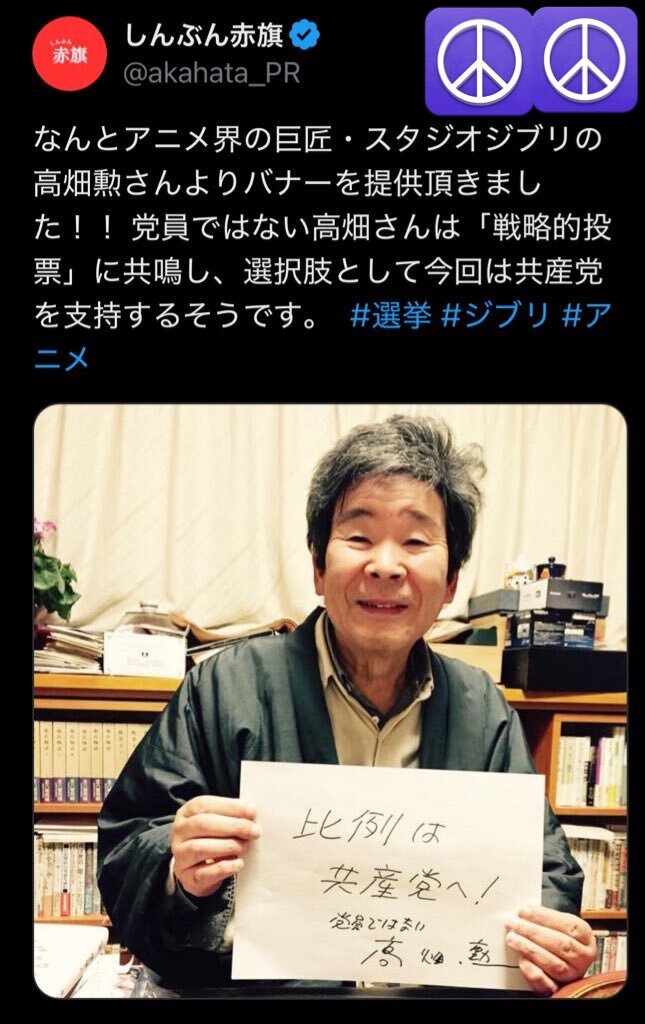 しんぶん赤旗
しんぶん
赤旗
@akahata_PR
なんとアニメ界の巨匠・スタジオジブリの
高畑勲さんよりバナーを提供頂きまし
た！！ 党員ではない高畑さんは「戦略的投
票」に共鳴し、選択肢として今回は共産党
を支持するそうです。 #選挙 #ジブリ #ア
ニメ
比例は
共産党へ!
党員ではない
高畑勲